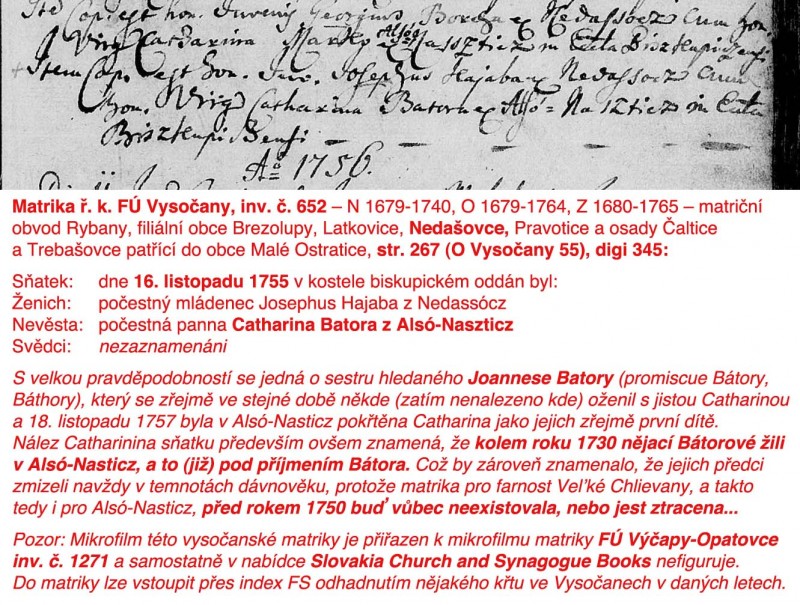 Ite Copulat est hon. Juvenis Georgius Boroka ex Nedassocz Cum hon.
Virg Catharina Marko ex Alsoo Nassticz in Eccla Bisztupiczensi
+ Item Cop. est hon. Juv. Josephus Hajaba ex Nedassocz Cum
hon. Virg Catharina Batora ex Alsó=Naszticz in Eccla
Bisztkupi Bensi
Aõ 1756.
Matrika ř. k. FÚ Vysočany, inv. č. 652 – N 1679-1740, O 1679-1764, Z 1680-1765 – matriční
obvod Rybany, filiální obce Brezolupy, Latkovice, Nedašovce, Pravotice a osady Čaltice
a Trebašovce patřící do obce Malé Ostratice, str. 267 (O Vysočany 55), digi 345:
Sňatek: dne 16. listopadu 1755 v kostele biskupickém oddán byl:
Ženich: počestný mládenec Josephus Hajaba z Nedassócz
Nevěsta: počestná panna Catharina Batora z Alsó-Naszticz
Svědci: nezaznamenáni
S velkou pravděpodobností se jedná o sestru hledaného Joannese Batory (promiscue Bátory,
Báthory), který se zřejmě ve stejné době někde (zatím nenalezeno kde) oženil s jistou Catharinou
a 18. listopadu 1757 byla v Alsó-Nasticz pokřtěna Catharina jako jejich zřejmě první dítě.
Nález Catharinina sňatku především ovšem znamená, že kolem roku 1730 nějací Bátorové žili
v Alsó-Nasticz, a to (již) pod příjmením Bátora. Což by zároveň znamenalo, že jejich předci
zmizeli navždy v temnotách dávnověku, protože matrika pro farnost Veľké Chlievany, a takto
tedy i pro Alsó-Nasticz, před rokem 1750 buď vůbec neexistovala, nebo jest ztracena...
Pozor: Mikrofilm této vysočanské matriky je přiřazen k mikrofilmu matriky FÚ Výčapy-Opatovce
inv. č. 1271 a samostatně v nabídce Slovakia Church and Synagogue Books nefiguruje.
Do matriky lze vstoupit přes index FS odhadnutím nějakého křtu ve Vysočanech v daných letech.